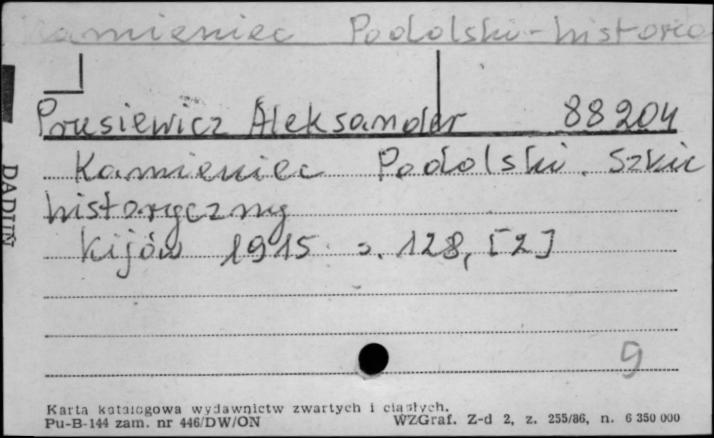 Kamieniec Podolski - historia
Prusiewicz Aleksander 88204
Kamieniec Podolski. Szkic
historyczny
Kijów 1915 s. 128, [2]
9
DADUŃ
Karta katalogowa wydawnictw zwartych i ciągłych.
Pu-B-144 zam. nr 446/DW/ON WZGraf. Z-d 2, z. 255/86, n. 6 350 000